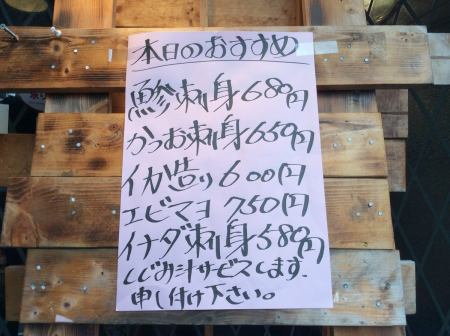 本日のおすすめ
鯵刺身680円
かつお刺身650円
イカ造り600円
エビマヨ 750円
イナダ刺身580円
しじみ汁サービスします.
申し付け下さい。